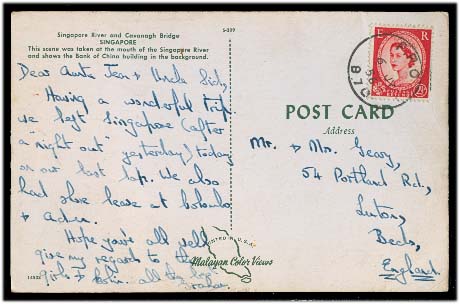 Singapore River and Cavanagh Bridge
SINGAPORE
This scene was taken at the mouth of the Singapore River
and shows the Bank of China building in the background.
S-399
Dear Aunt Jean & Uncle Sid,
Having a wonderful trip
we left Singapore (after
a "night out" yesterday) today
on our last lap. We also
had shore leave at Colombo
& Aden.
Hope you're all well
give my regards to the
girls & John. all the
E R
POST CARD
Address
Mr. & Mr. Geary,
54 Portland Rd,
Luton,
Beds,
England.
PRINTED IN U.S.A.
Malayan Color Views